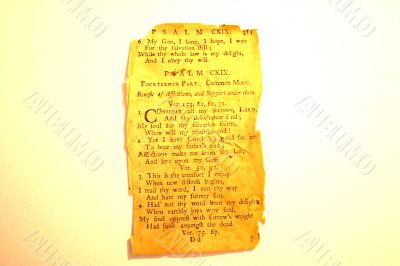 PSALM CXIX. 311
6. My God, I long, I hope, I wait
For thy salvation still;
While thy whole law is my delight,
And I obey thy will.
PSALM CXIX.
FOURTEENTH PART. Common Metre.
Benefit of Afflictions, and Support under them.
Ver. 153, 81, 82.
1. CONSIDER all my sorrows, LORD,
And thy deliv'rance send;
My soul for thy salvation faints,
When will my troubles end!
2. Yet I have found 'tis good for me
To bear my father's rod;
Afflictions make me learn thy law,
And live upon my God.
Ver. 50, 92.
3. This is the comfort I enjoy
When new distress begins,
I read thy word, I run thy way
And hate my former sins.
4. Had not thy word been my delight
When earthly joys were fled,
My soul opprest with sorrow's weight
Had sunk amongst the dead.
Ver. 75. 67.
D d